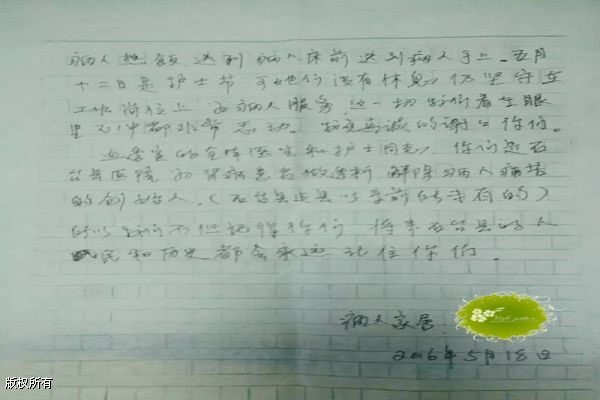 病人想领送到病人床前送到病人手上。五月
十二日是护士节可她们没有休息仍坚守在
工作岗位上为病人服务这一切我们看在眼
里心中都非常感动。我衷真诚的谢谢你们。
血透室的全体医生和护士同志，你们是石
台县医院为肾病患者做透析，解除病人病接
的创始人。（石台县这县以李前的没有的）
所以我们不但记得你们 将来石台县的人
民和历史都会永远记住你们。
病人家属
2016年5月18日
版权所有